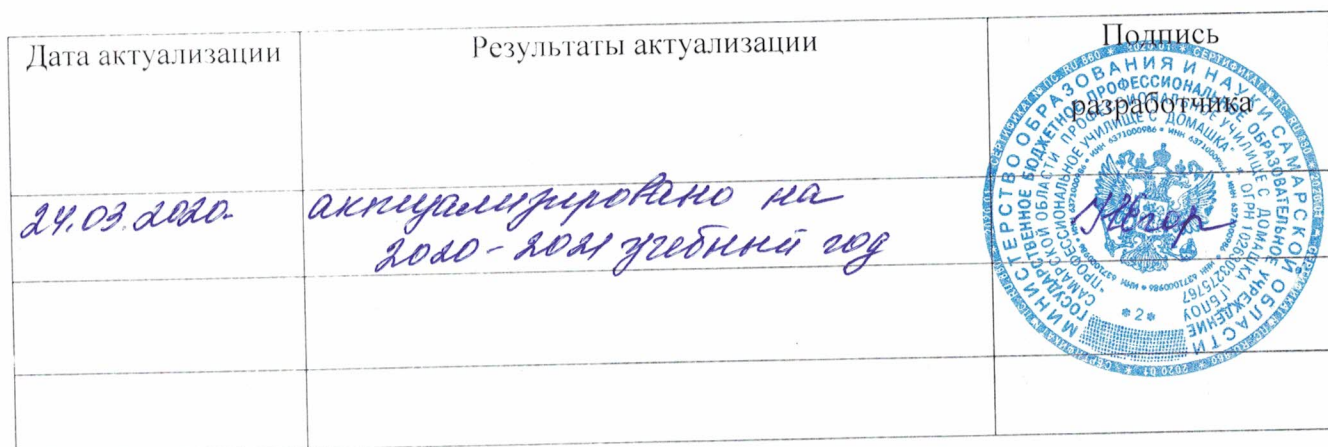 Дата актуализации
Результаты актуализации
Подпись
разработчика
24.03.2020.
актуализировано на
2020-2021 учебный год
МИНИСТЕРСТВО ОБРАЗОВАНИЯ И НАУКИ САМАРСКОЙ ОБЛАСТИ
ГОСУДАРСТВЕННОЕ БЮДЖЕТНОЕ ПРОФЕССИОНАЛЬНОЕ ОБРАЗОВАТЕЛЬНОЕ УЧРЕЖДЕНИЕ
САМАРСКОЙ ОБЛАСТИ "ПРОФЕССИОНАЛЬНОЕ УЧИЛИЩЕ С. ДОМАШКА"
(ГБПОУ
"ПРОФЕССИОНАЛЬНОЕ УЧИЛИЩЕ С. ДОМАШКА"
ИНН 6371000986
* 2 *